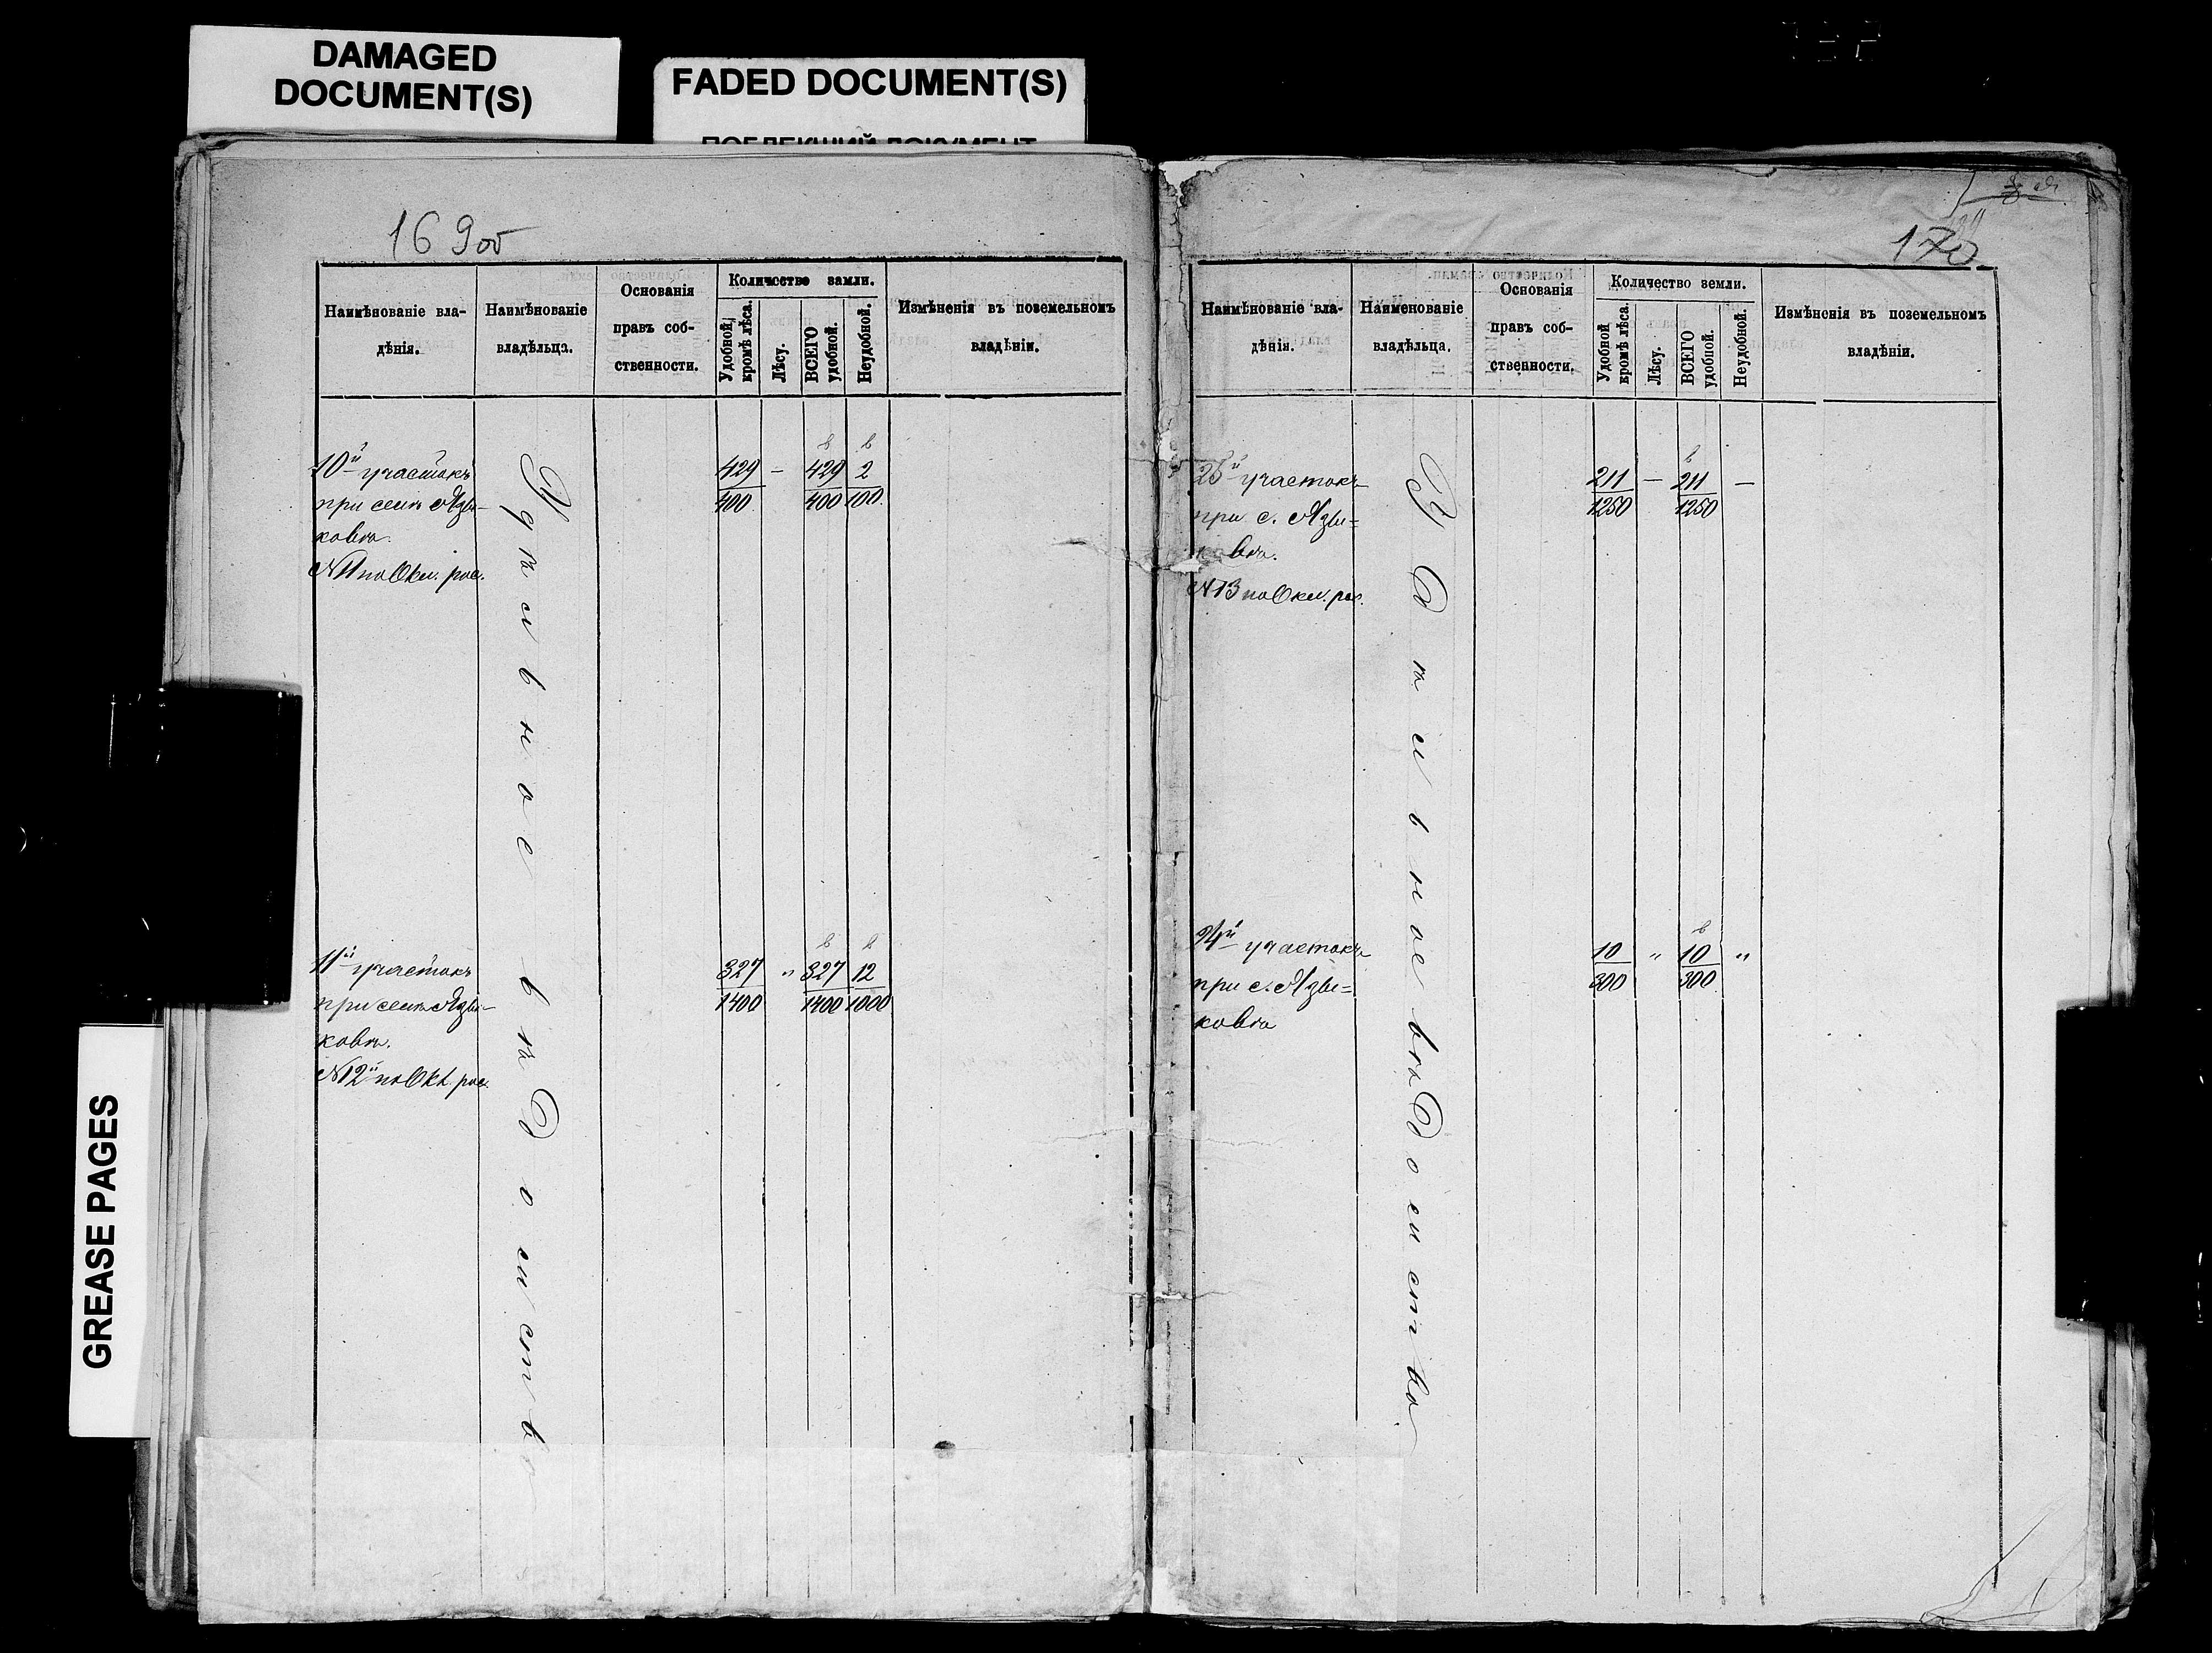 DAMAGED
DOCUMENT(S)
FADED DOCUMENT(S)
ПОБЛЕКШИЙ ДОКУМЕНТ
GREASE PAGES
169об
Наимѣнованіе вла-
дѣнія.
Наимѣнованіе
владѣльца.
Основанія
правъ соб-
ственности.
Количество земли.
Удобной,
кромѣ лѣса.
Лѣсу.
ВСЕГО
удобной.
Неудобной.
Измѣненія въ поземельномъ
владѣніи.
10й участокъ
при селѣ Язы-
ковѣ.
N 11 по Окл. рос.
Удѣльное вѣдомство
429 — 429 2
400 400 100
11й участокъ
при селѣ Язы-
ковѣ.
N 12й по Окл. рос.
327 „ 327 12
1400 1400 1000
170
Наимѣнованіе вла-
дѣнія.
Наименованіе
владѣльца.
Основанія
правъ соб-
ственности.
Количество земли.
Удобной
кромѣ лѣса.
Лѣсу.
ВСЕГО
удобной.
Неудобной.
Измѣненія въ поземельномъ
владѣніи.
й участокъ
при с. Язы=
ковѣ.
N 13 по Окл. рос.
Удѣльное вѣдомство
211 — 211 —
1250 1250
24й участокъ
при с. Язы=
ковѣ
10 „ 10 „
300 300